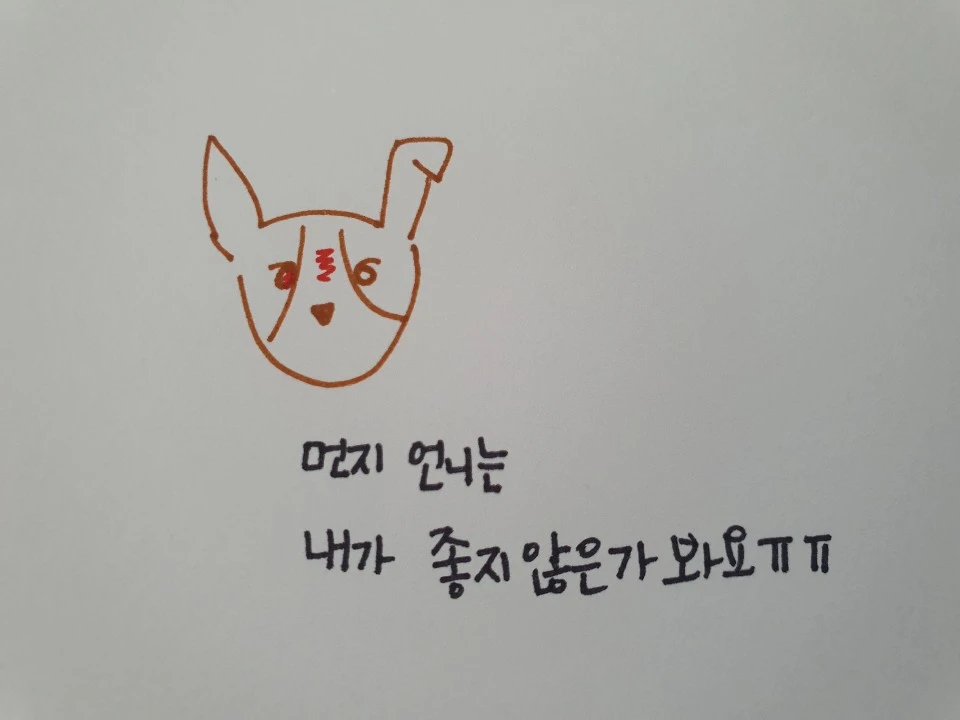 먼지 언니는
내가 좋지않은가봐요ㅠㅠ